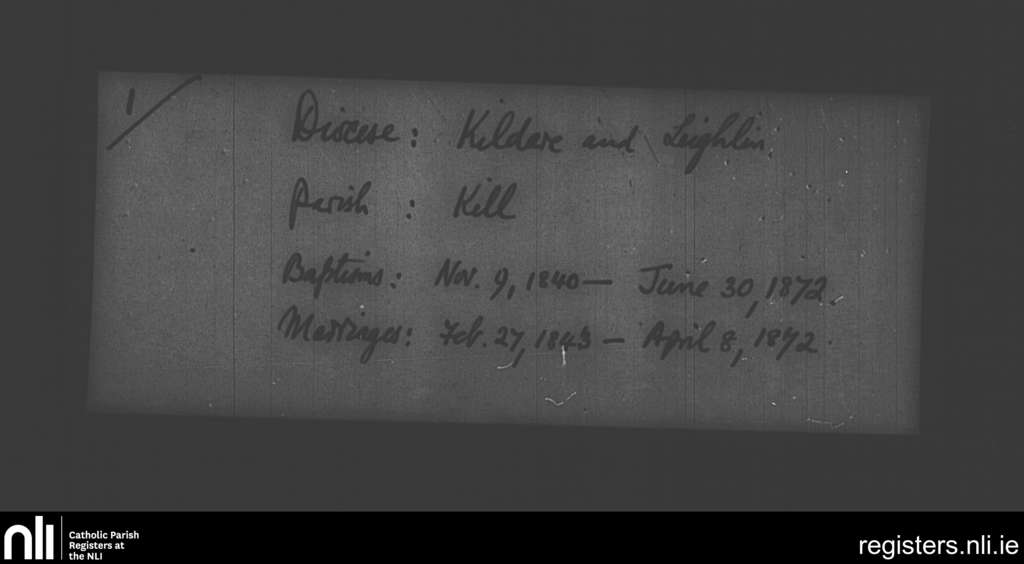 1/
Diocese: Kildare and Leighlin
Parish : Kill
Baptisms: Nov. 9, 1840 — June 30, 1872.
Marriages: Feb. 27, 1843 — April 8, 1872.
nli
Catholic Parish
Registers at
the NLI
registers.nli.ie